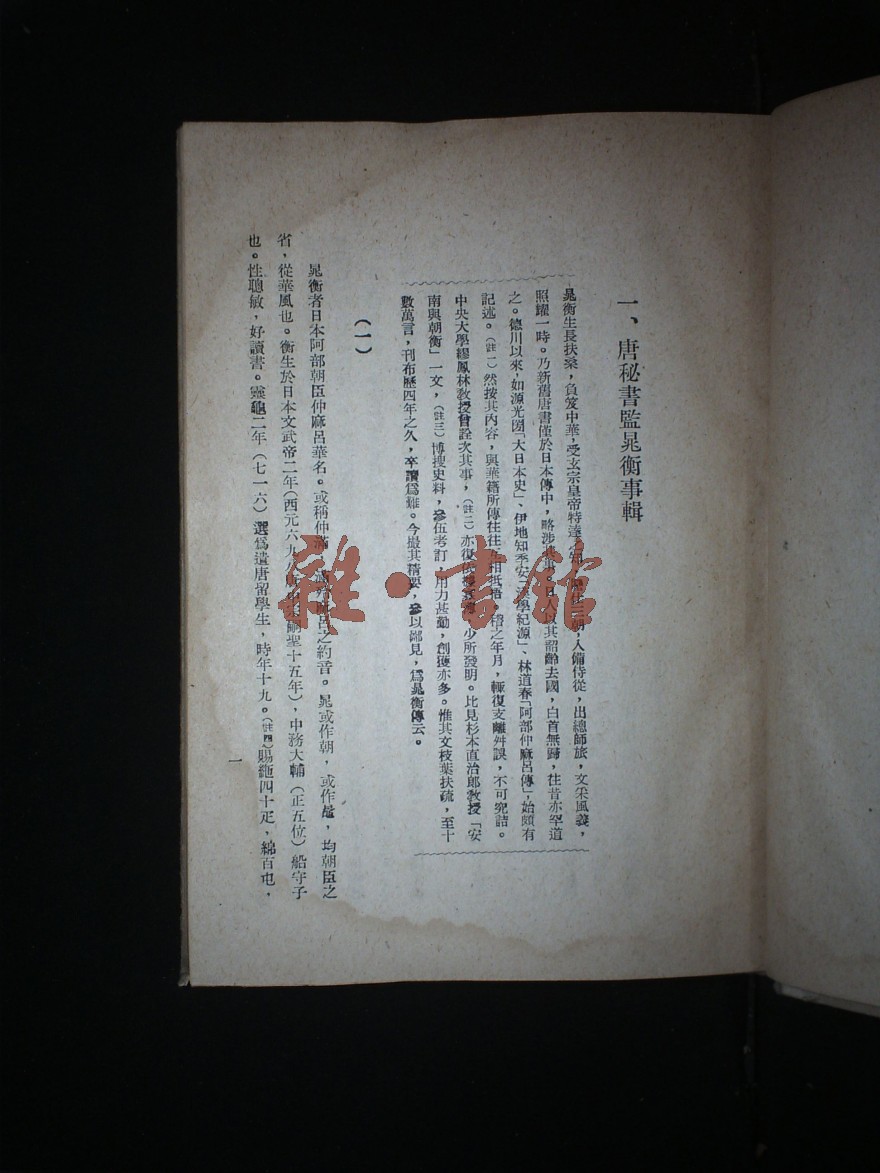 一、唐秘書監晁衡事輯
晁衡生長扶桑，負笈中華，受玄宗皇帝特達之知，歷仕三朝，入備侍從，出總師旅，文采風義，
照耀一時。乃新舊唐書僅於日本傳中，略涉其事。日人以其韶齡去國，白首無歸，往昔亦罕道
之。德川以來，如源光圀「大日本史」、伊地知季安「漢學紀源」、林道春「阿部仲麻呂傳」，始頗有
記述。（註一）然按其內容，與華籍所傳往往互相牴牾。稽之年月，輒復支離舛誤，不可究詰。
中央大學繆鳳林教授曾詮次其事，（註二）亦復依據，少所發明。比見杉本直治郎教授「安
南與朝衡」一文，（註三）博搜史料，參伍考訂，用力甚勤，創獲亦多。惟其文枝葉扶疏，至十
數萬言，刊布歷四年之久，卒讀爲難。今撮其精要，參以鄙見，爲晁衡傳云。
（一）
晁衡者日本阿部朝臣仲麻呂華名。或稱仲滿，滿麻呂之約音。晁或作朝，或作鼂，均朝臣之
省，從華風也。衡生於日本文武帝二年（西元六九八唐中宗嗣聖十五年），中務大輔（正五位）船守子
也。性聰敏，好讀書。靈龜二年（七一六）選爲遣唐留學生，時年十九。（註四）賜絁四十疋，綿百屯，
一
雜·書館